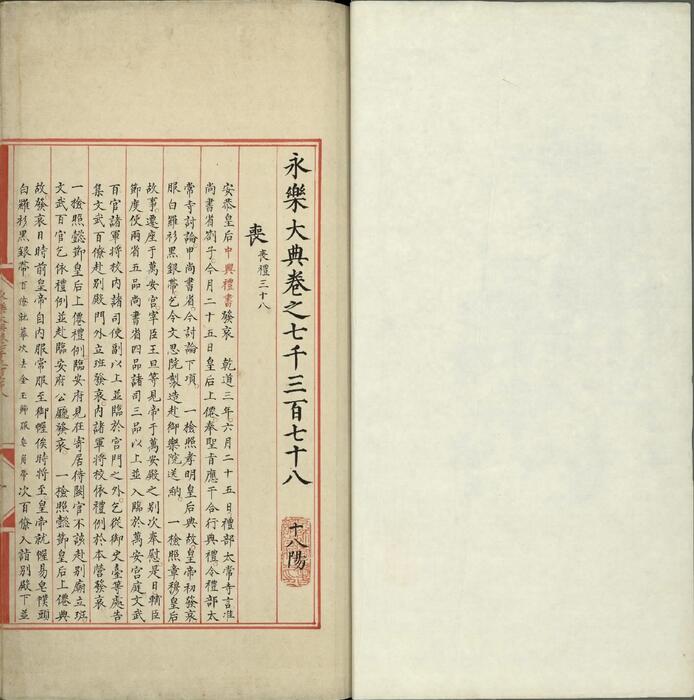 永樂大典卷之七千三百七十八 十八陽
喪 喪禮三十八
安恭皇后中興禮書發哀 乾道三年六月二十五日禮部太常寺言准
尚書省劄子今月二十五日皇后上僊奉聖旨應干合行典禮令禮部太
常寺討論申尚書省今討論下項 一檢照孝明皇后典故皇帝初發哀
服白羅衫黑銀帶乞令文思院製造赴御藥院送納 一檢照章穆皇后
故事遷座于萬安宮宰臣王旦等見帝于萬安殿之別次奉慰是日輔臣
節度使兩省五品尚書省四品諸司三品以上並入臨於萬安宮庭文武
百官諸軍將校內諸司使副以上並臨於宮門之外乞從御史臺等處告
集文武百僚赴別殿門外立班發哀內諸軍將校依禮例於本營發哀
一檢照懿節皇后上僊禮例臨安府見在寄居待闕官不該赴別廟立班
文武百官乞依禮例並赴臨安府公廳發哀 一檢照懿節皇后上僊典
故發哀日時前皇帝自內服常服至御幄俟時將至皇帝就幄易皂幞頭
白羅衫黑銀帶百僚並幕次去金玉飾服魚角帶次百僚入詣別殿下並